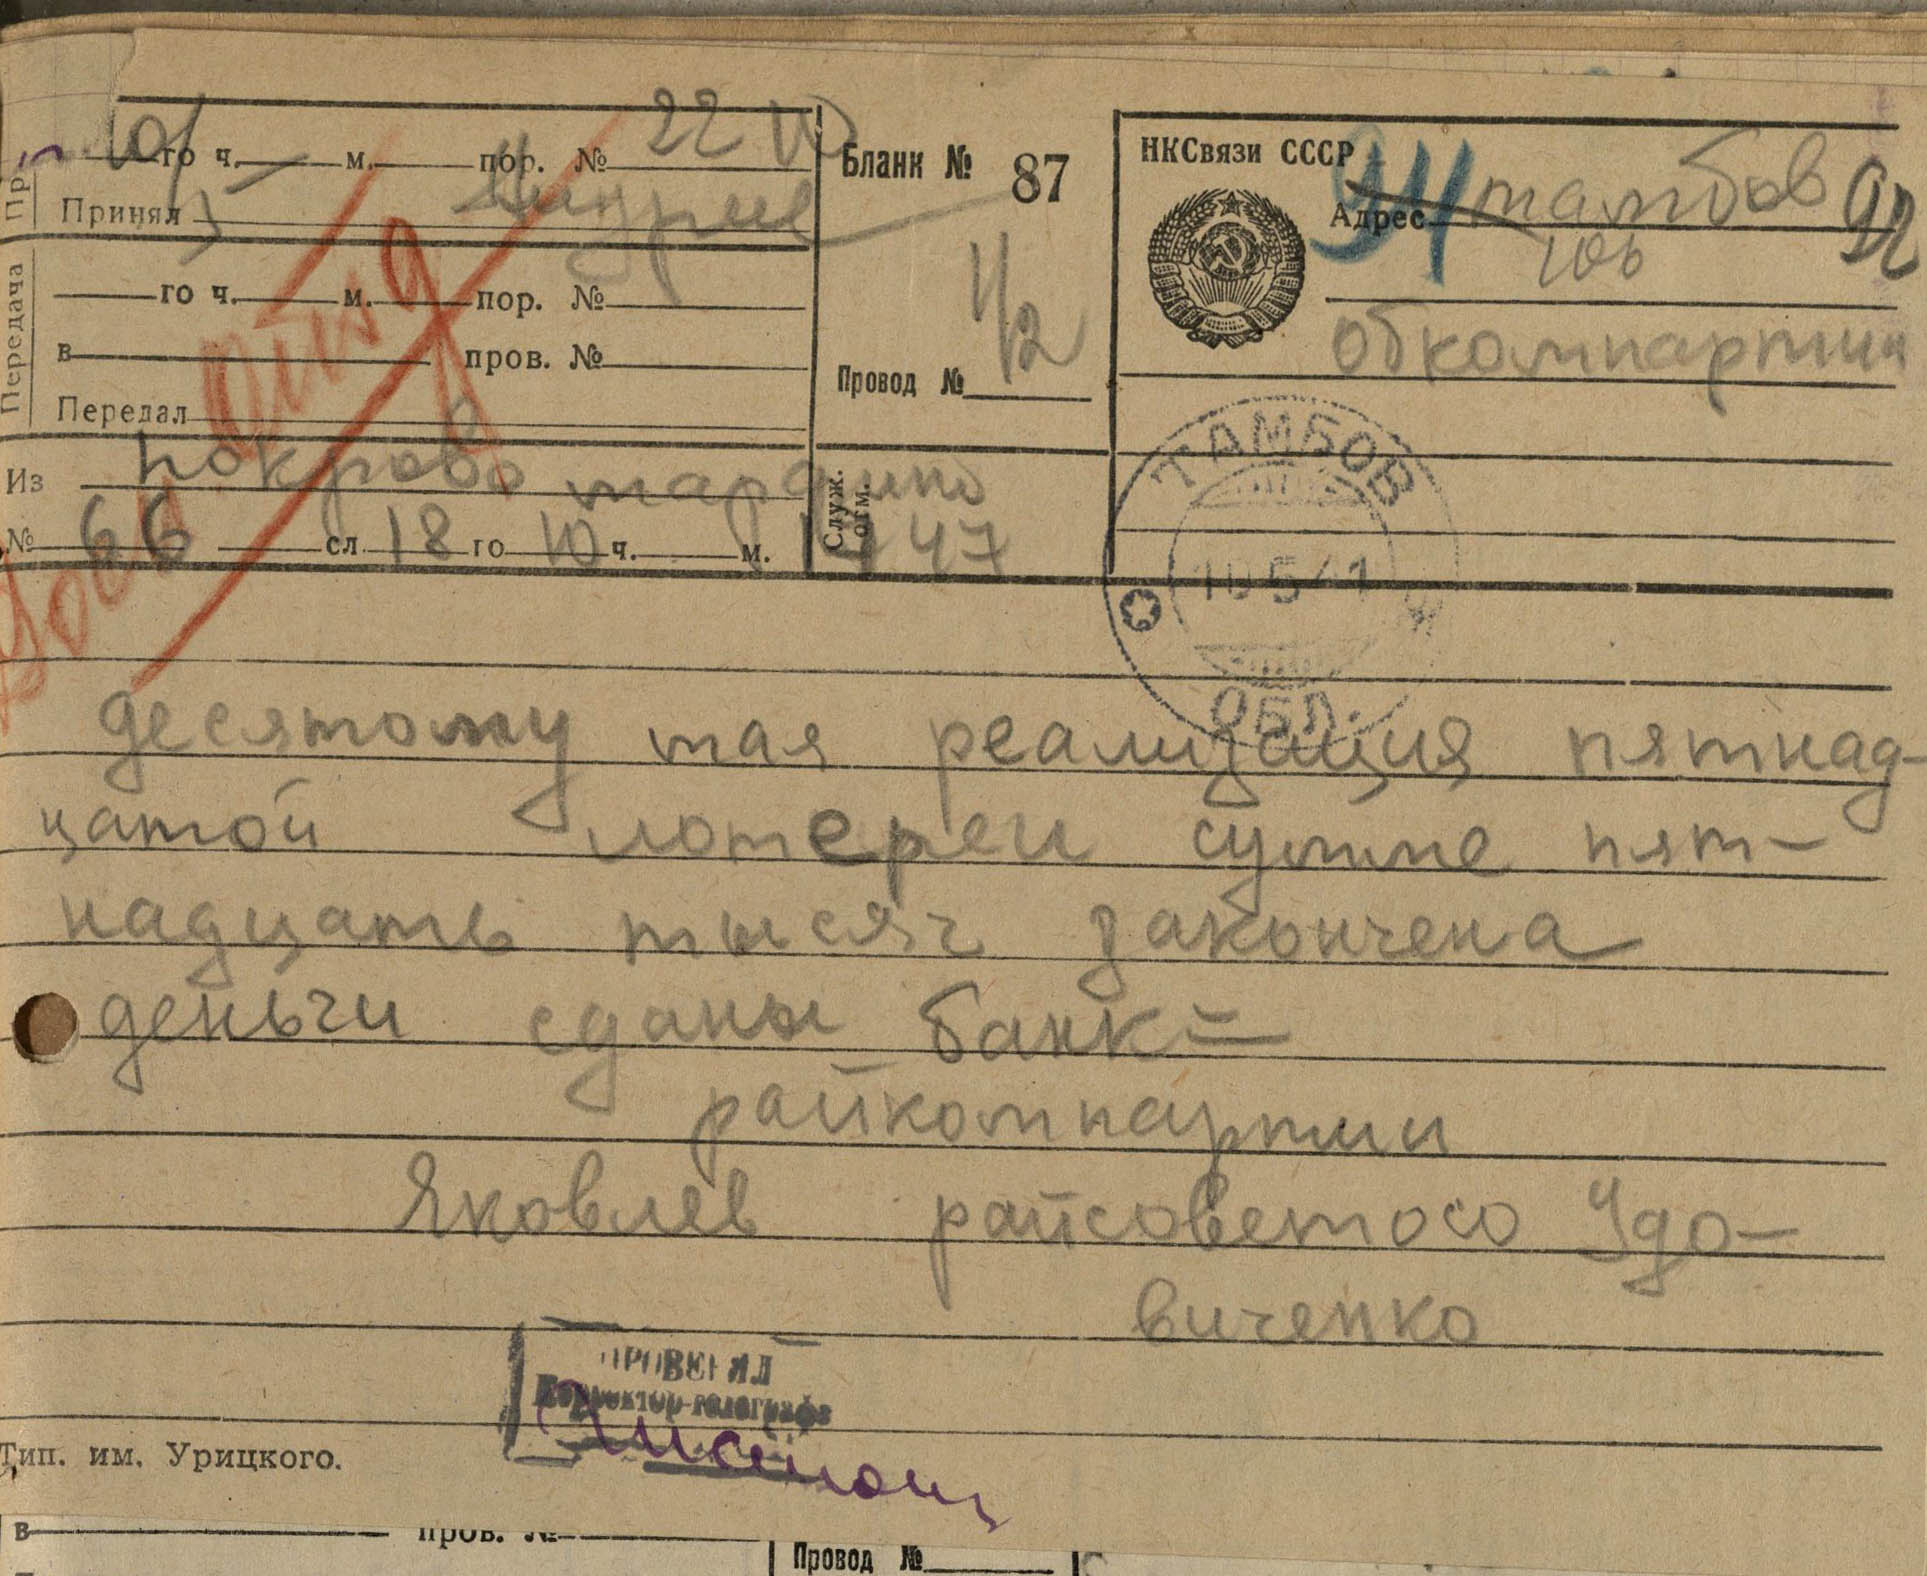 го ч. м. пор. № 22
Принял
Бланк № 87
НКСвязи СССР
94 92
Адрес тамбов
обкомпартии
Передача
го ч. м. пор. №
в пров. №
Передал
1/2
Провод №
Из покрово марфино
№ 66 сл 18 го 10 ч. м. 14 47
Служ. отм.
ТАМБОВ
10 5 41
ОБЛ.
десятому мая реализация пятнад-
цатой лотереи сумме пят-
надцать тысяч закончена
деньги сданы банк =
райкомпартии
Яковлев райсовет осо Удо-
виченко
ПРОВЕРИЛ
Корректор-телеграфа
Тип. им. Урицкого.
в пров. №
Провод №